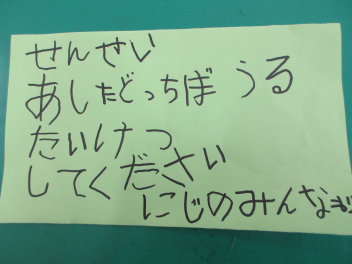 せんせい
あしたどっちぼうる
たいけつ
してください
にじのみんなも